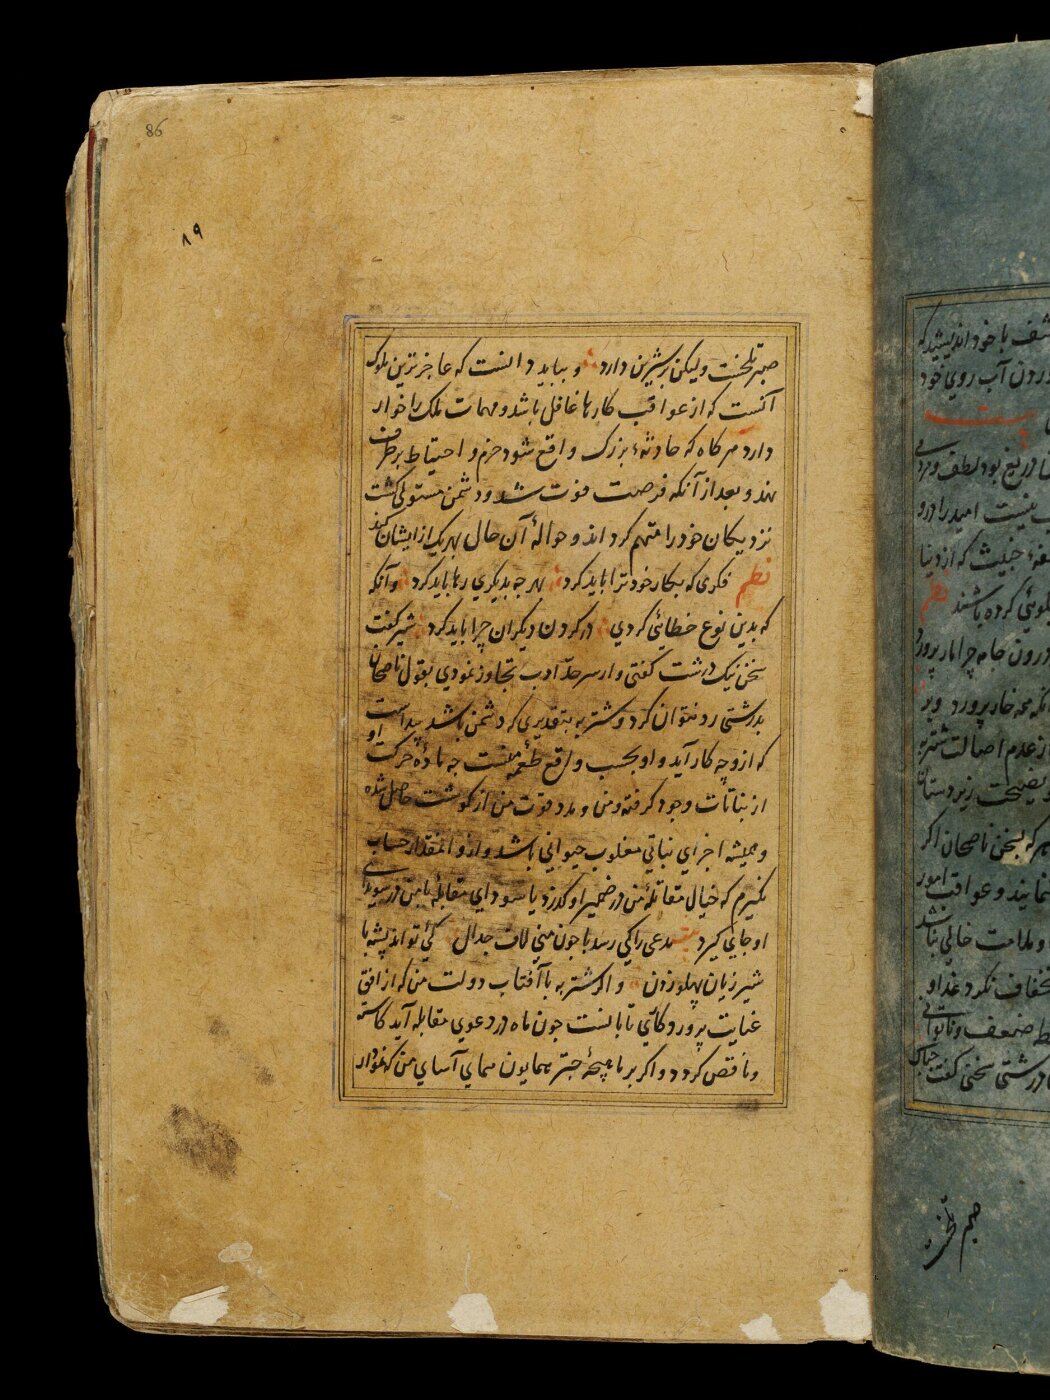 86
۸۹
صبر تلخست ولیکن بر شیرین دارد و بباید دانست که عاجزترین ملوک
آنست که از عواقب کارها غافل باشد و مهمات ملک را خوار
دارد هر کاه که حادثهٔ بزرک واقع شود حزم و احتیاط بر طرف
نهد و بعد از آنکه فرصت فوت شد و دشمن مستولی کشت
نزدیکان خود را متهم کرداند و حوالهٔ آن حال بهر یک از ایشان کند
نظم فکری که بکار خود ترا باید کرد بهر چه بدیکری رها باید کرد وآنکه
که بدین نوع خطائی کردی در کردن دیکران چرا باید کرد شیر کفت
سخن نیک درشت کفتی و از سر حدّ ادب تجاوز نمودی بقول ناصحان
بدرشتی رد نتوان کرد و شتربه بتقدیری که دشمن باشد پیداست
که ازو چه کار آید و او بحسب واقع طعمه منست چه مادهٔ حرکت او
از نباتات وجود کرفته و من و مدد قوت من از کوشت حاصل شده
و همیشه اجزای نباتی مغلوب حیوانی باشد و از و آنمقدار حساب
نکیرم که خیال مقاتلهٔ من در ضمیر او کذرد یا سودای مقابلهٔ با من در سویدای
او جای کیرد بیت مدعی را کی رسد با چون منی لاف جدال کی تواند پشه با
شیر ژیان پهلو زدن و اکر شتربه با آفتاب دولت من که از افق
عنایت پروردکاری تابانست چون ماه در دعوی مقابله آید کاسته
و ناقص کردد و اکر بر ما پنجهٔ چتر همایون همای آسای من
با خود اندیشید که
آب روی خود
بیت
دریغ بود لطف و مردمی
نیست امید را درو
خبیث که از دنیا
کرده باشند نظم
درون جامه چرا مار پرورد
خار پرورد و بر
از عدم اصالت شتربه
نصیحت زیردستان
هر که بسخن ناصحان اکر
ننمایند و عواقب امور
و ملامت خالی نباشد
نکرد غذا و
ضعف و ناتوانی
درشتی سخن کفت
صبر تلخست